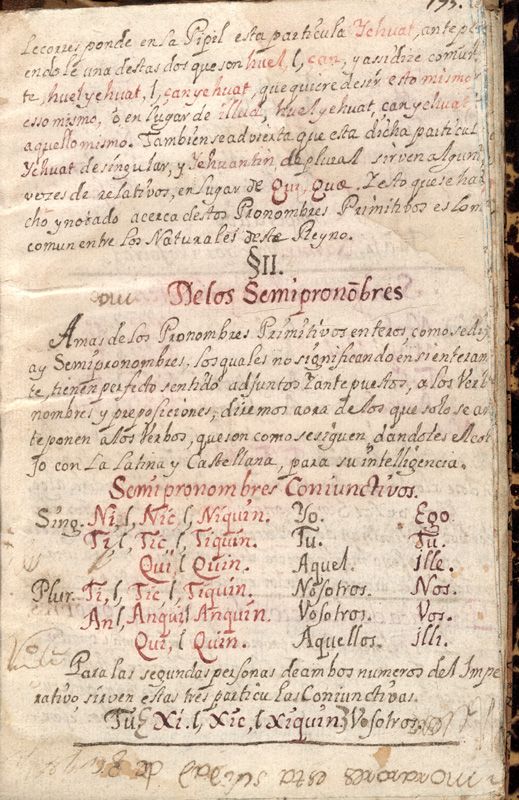 195.
le corresponde en la Pipil esta particula Yehuat, antepo
endole una destas dos que son huel, l, çan, y assi dize comun
te, huel yehuat, l, çan yehuat, que quiere desir esto mismo
esso mismo, ò en lugar de illud, huel yehuat, çan yehuat
aquello mismo. Tambien se advierta que esta dicha particul
Yehuat de singular, y Yehuantin de plural sirven algun
vezes de relativos, en lugar de qui, quæ. Y esto que se ha
cho y notado acerca destos Pronombres Primitivos es lo m
comun entre los Naturales deste Reyno.
§II.
De los Semipronõbres
Amas de los Pronombres Primitivos enteros, como se di
ay Semipronombres, los quales no significando en si enteram
te, tienen perfecto sentido adjuntos y antepuestos, a los Verb
nombres y preposiciones, diremos aora de los que solo se an
teponen a los Verbos, que son como se siguen, dandoles el cot
jo con La Latina y Castellana, para su intelligencia.
Semipronombres Coniunctivos.
Sing. Ni, l, Nic, l, Niquin. Yo. Ego
Ti, l, Tic, l, Tiquin. Tu. Tu.
Qui, l, Quin. Aquel. ille.
Plur. Ti, l, Tic, l, Tiquin. Nosotros. Nos.
An, l, Anqui, l Anquin. Vosotros. Vos.
Qui, l, Quin. Aquellos. illi.
Para las segundas personas de ambos numeros del Impe
rativo, sirven estas tres particulas Coniunctivas.
Tu. Xi. l, Xic, l Xiquin Vosotros